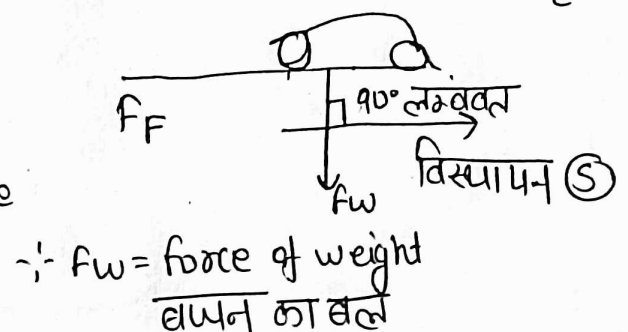 90° लम्बवत
F_F
विस्थापन Ⓢ
Fw
∵ Fw = force of weight
वजन का बल